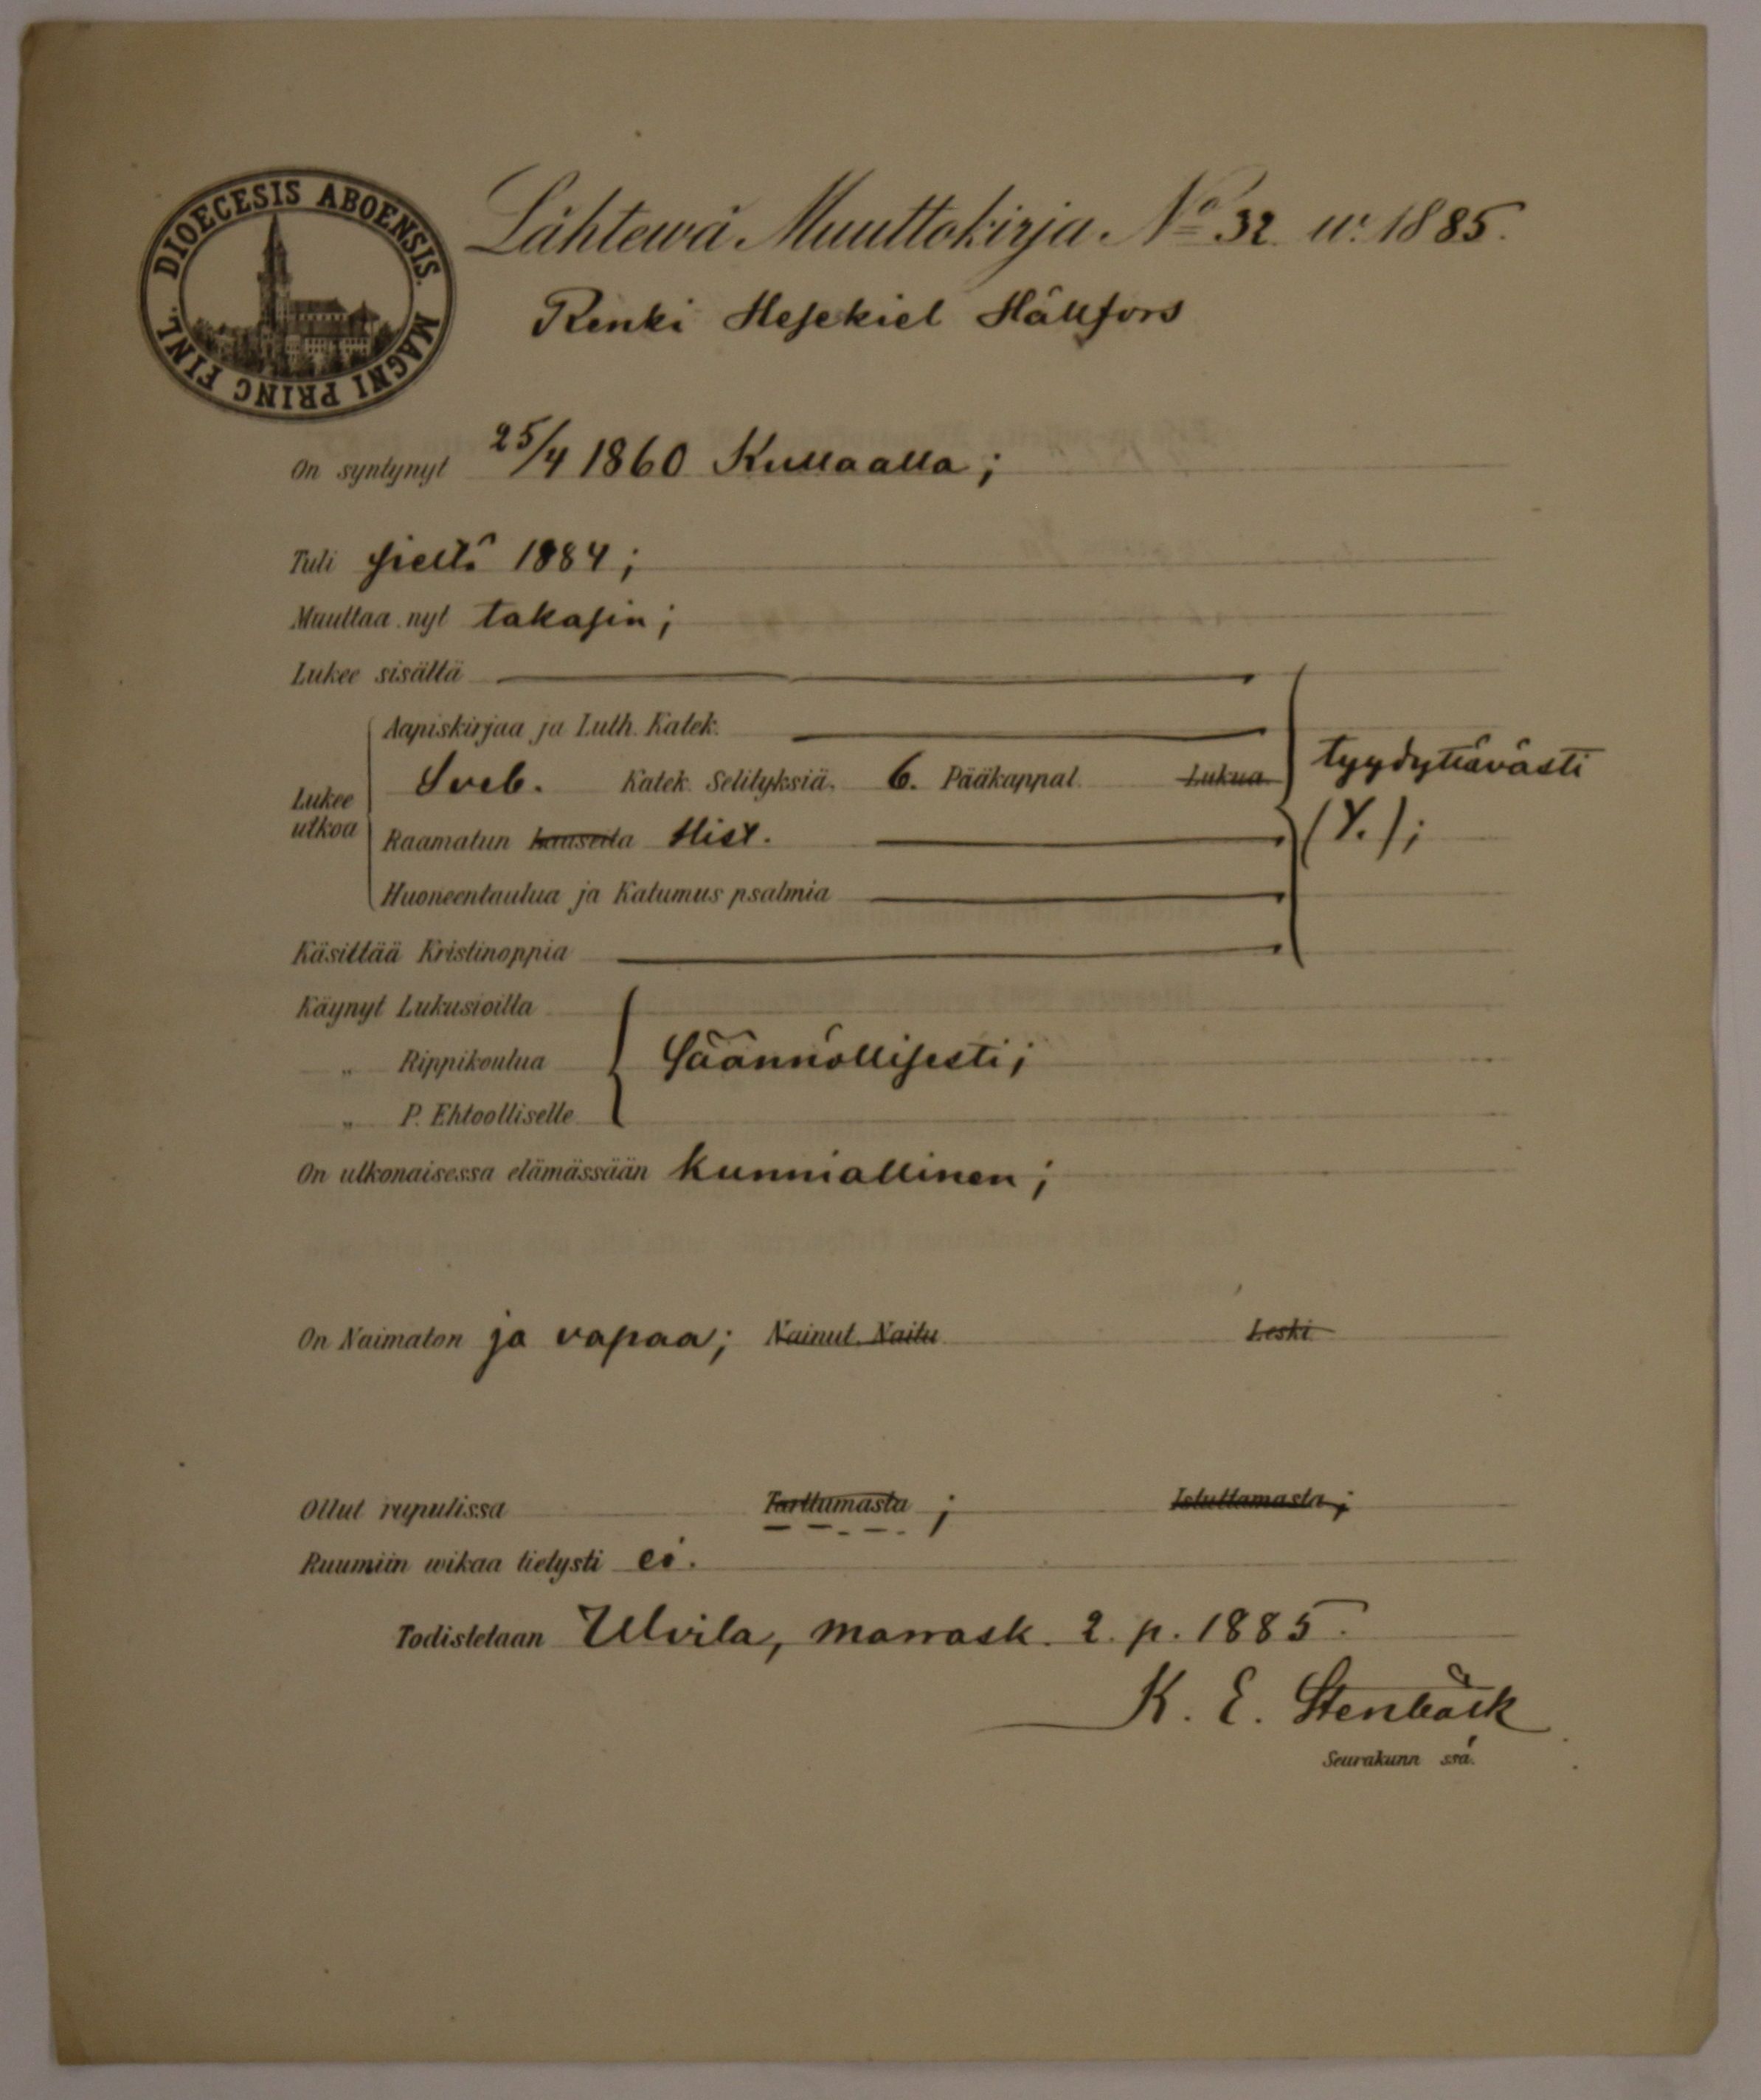 DIOECESIS ABOENSIS. MAGNI PRINC FINL.
Lähtewä Muuttokirja No 32 w. 1885.
Renki Hesekiel Hällfors
On syntynyt 25/4 1860 Kullaalla;
Tuli sieltä 1884;
Muuttaa nyt takasin;
Lukee sisältä
Aapiskirjaa ja Luth. Katek.
Lukee ulkoa
Sveb. Katek. Selityksiä, 6. Pääkappal. Lukua
tyydyttävästi
(Y.);
Raamatun lauseita Hist.
Huoneentaulua ja Katumus psalmia
Käsittää Kristinoppia
Käynyt Lukusioilla
„ Rippikoulua
Säännöllisesti;
„ P. Ehtoolliselle
On ulkonaisessa elämässään kunniallinen;
On Naimaton ja vapaa; Nainut. Naitu Leski
Ollut rupulissa Tarttumasta; Istuttamasta;
Ruumiin wikaa tietysti ei.
Todistetaan Ulvila, marrask. 2. p. 1885.
K. E. Stenbäck
Seurakunn ssa.